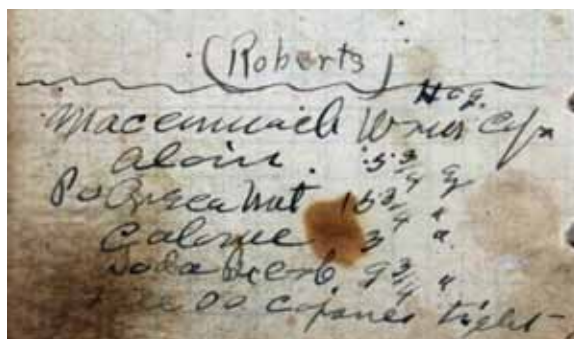 (Roberts)
Hog.
Worm Caps
Aloin. 5 3/4 g
Po Areca Nut 15 3/4 "
Calomel 3 "
Soda Bicarb 9 3/4 "
00 capsules tight